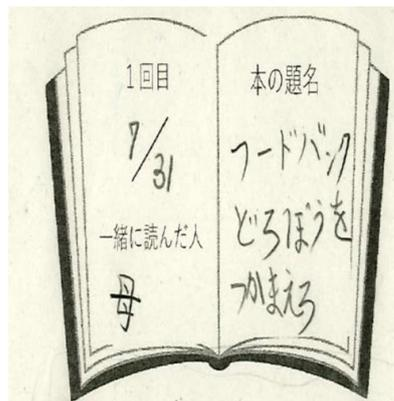 1回目
7/31
一緒に読んだ人
母
本の題名
フードバンク
どろぼうを
つかまえろ